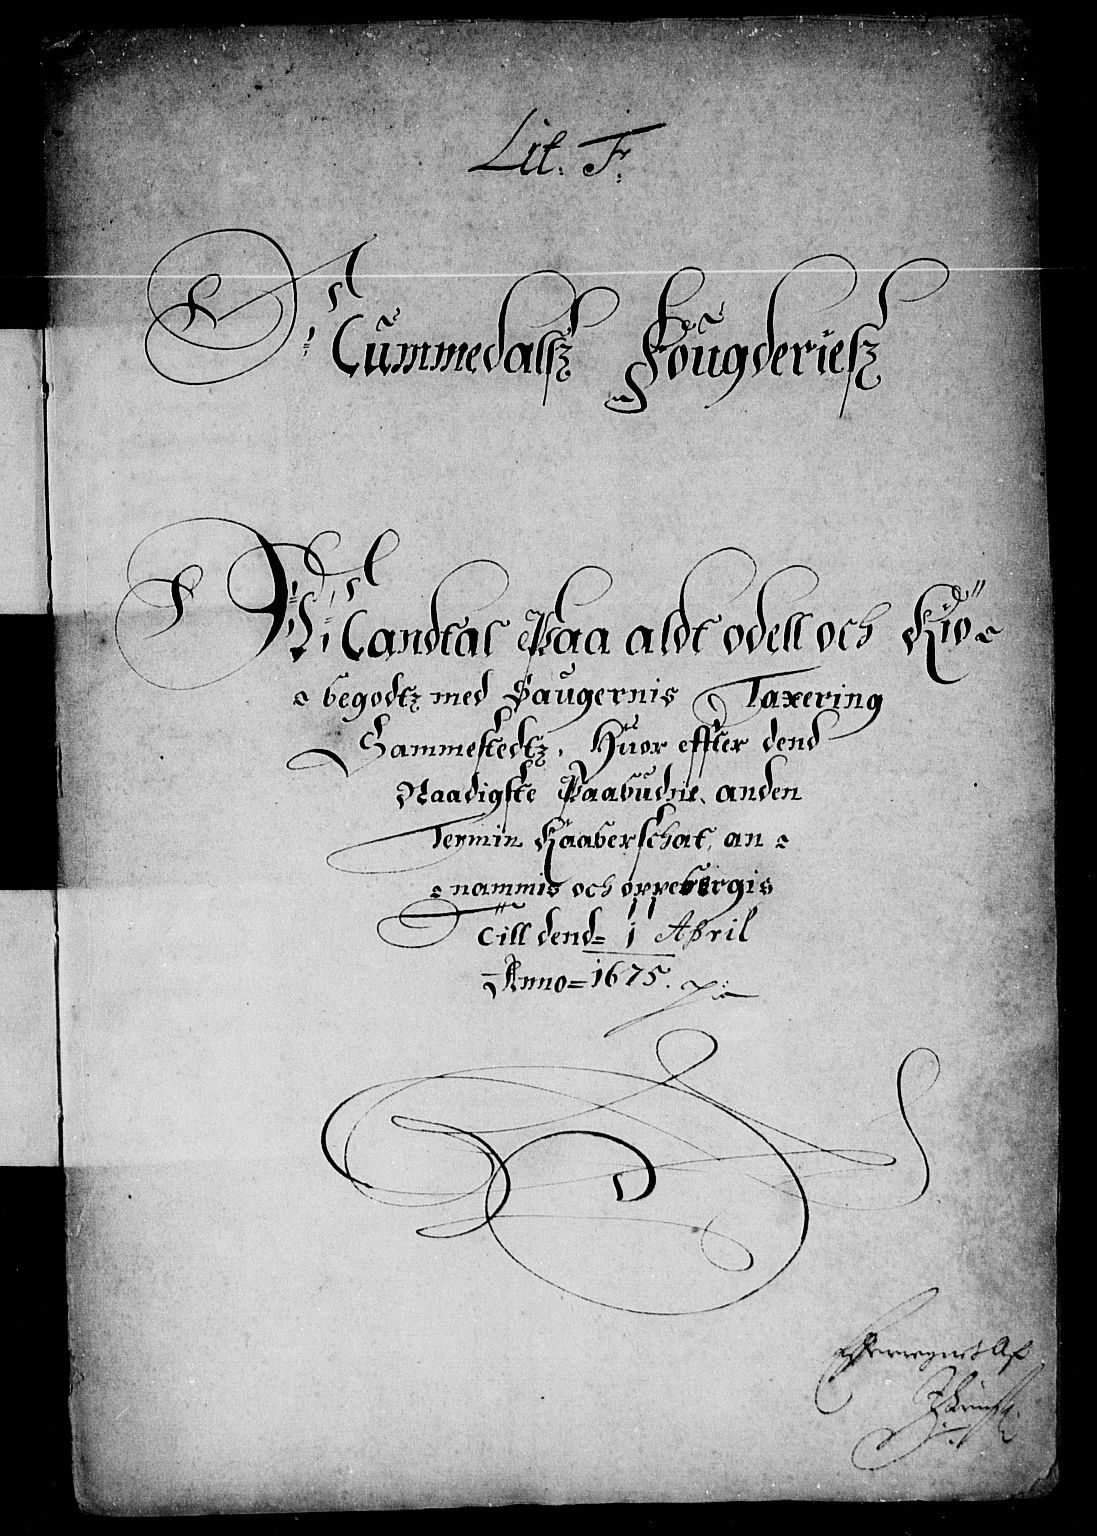 Lit. F.
Nummedalsz Fougderiesz
Mandtal Paa aldt odell och Kiø-
begodtz med Baugernis Taxering
Sammestedtz, Huor effter dend
Naadigste Paabudne anden
Termin Kaaberschat, an-
nammis och oppebergis
till dend 1 April
Anno 1675.